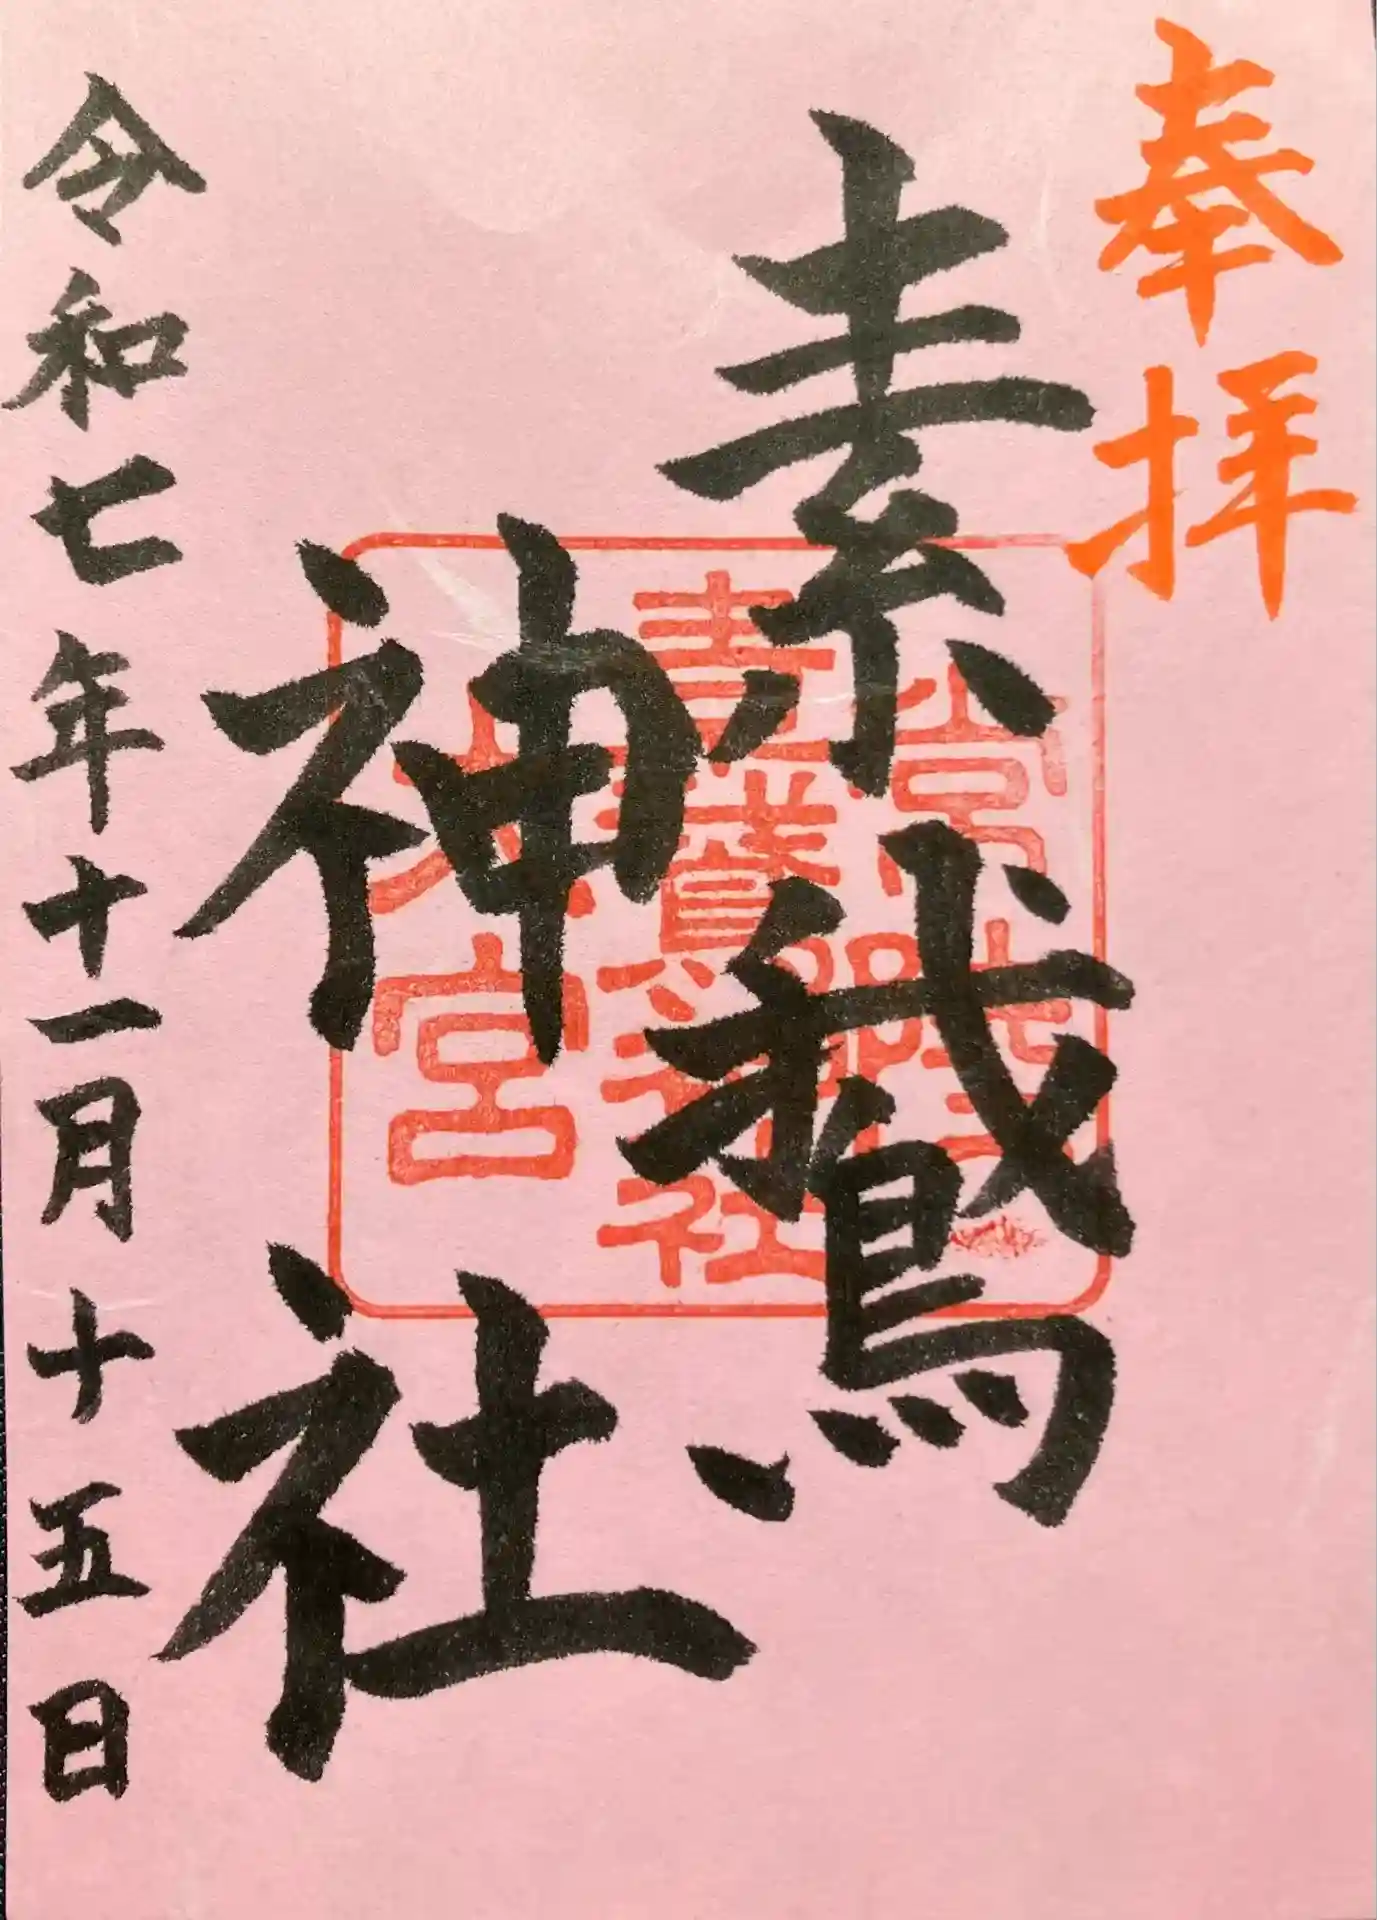 奉拝
素鵞
神社
令和七年十一月十五日
常陸
素鵞神社
大宮